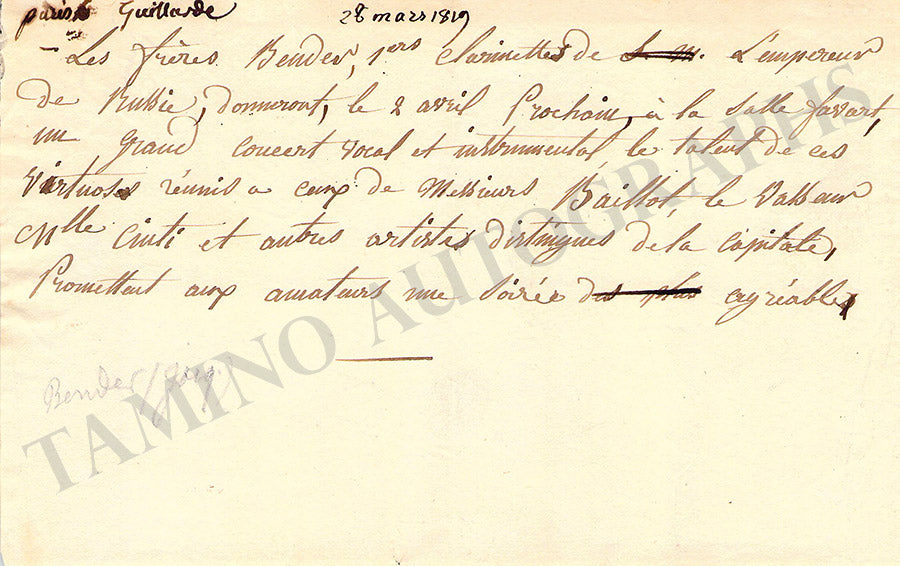 paris Guillarde 28 mars 1819
- Les frères Bender, 1ers Clarinettes de S. M. L'empereur
de Russie, donneront, le 2 avril Prochain, à la Salle favart,
un grand Concert vocal et instrumental, le talent de ces
Virtuoses réunis a ceux de Messieurs Baillot, le Vasseur
Mlle Cinti et autres artistes distingues de la Capitale,
Promettent aux amateurs une Soirée des plus agréables
Bender (Jorg.)
TAMINO AUTOGRAPHS